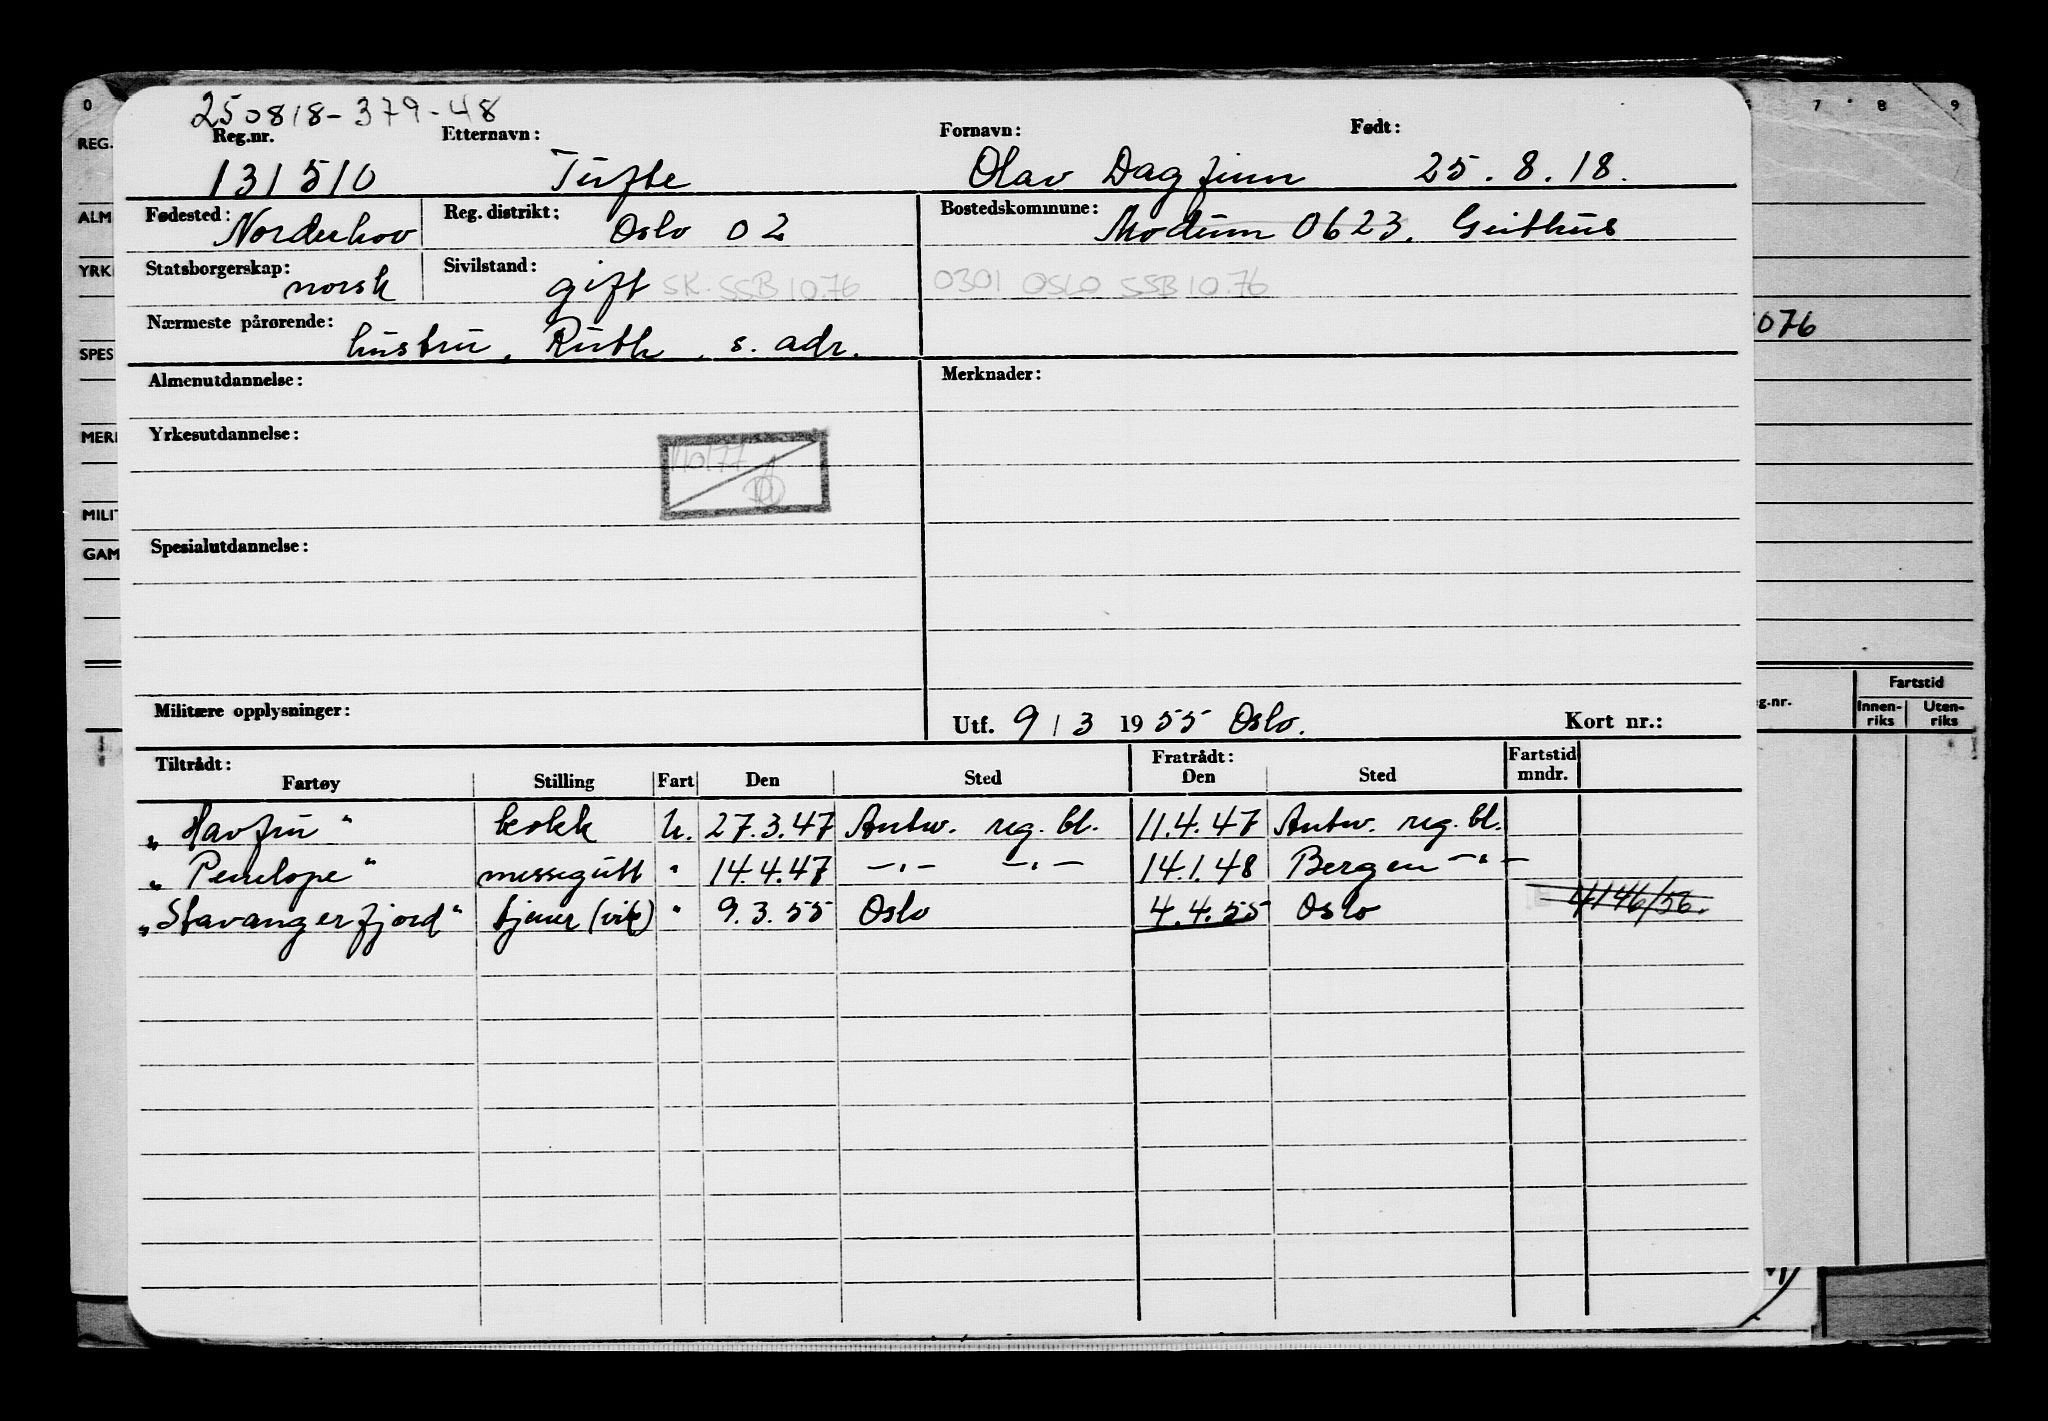 250818-379-48
Reg.nr. Etternavn: Fornavn: Født:
131510 Tufte Olav Dagfinn 25.8.18.
Fødested: Norderhov Reg. distrikt: Oslo 02 Bostedskommune: Modum 0623. Geithus
Statsborgerskap: norsk Sivilstand: gift SK. SSB 10.76 0301 OSLO SSB 10.76
Nærmeste pårørende: hustru, Ruth, s. adr.
Almenutdannelse: Merknader:
Yrkesutdannelse:
Spesialutdannelse:
Militære opplysninger: Utf. 9/3 1955 Oslo. Kort nr.:
Tiltrådt: Fratrådt: Fartstid
Fartøy Stilling Fart Den Sted Den Sted mndr.
„Havfru" kokk U. 27.3.47 Antw. reg. bl. 11.4.47 Antw. reg. bl.
„Penelope" messegutt " 14.4.47 -"- -"- 14.1.48 Bergen -"-
„Stavangerfjord" tjener (vik) " 9.3.55 Oslo 4.4.55 Oslo 4146/56.
0 7 8 9
REG.
ALM
YRK
SPES 1076
MER
MILIT
GAM
g.nr. Fartstid
Innen-riks Uten-riks